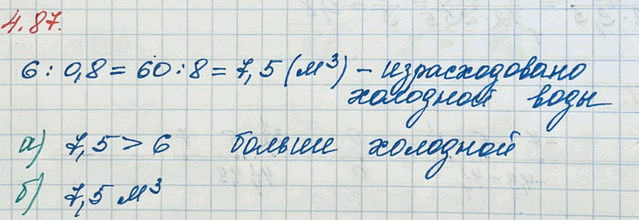 4.87.
6 : 0,8 = 60 : 8 = 7,5 (м³) – израсходовано
холодной воды
а) 7,5 > 6 больше холодной
б) 7,5 м³